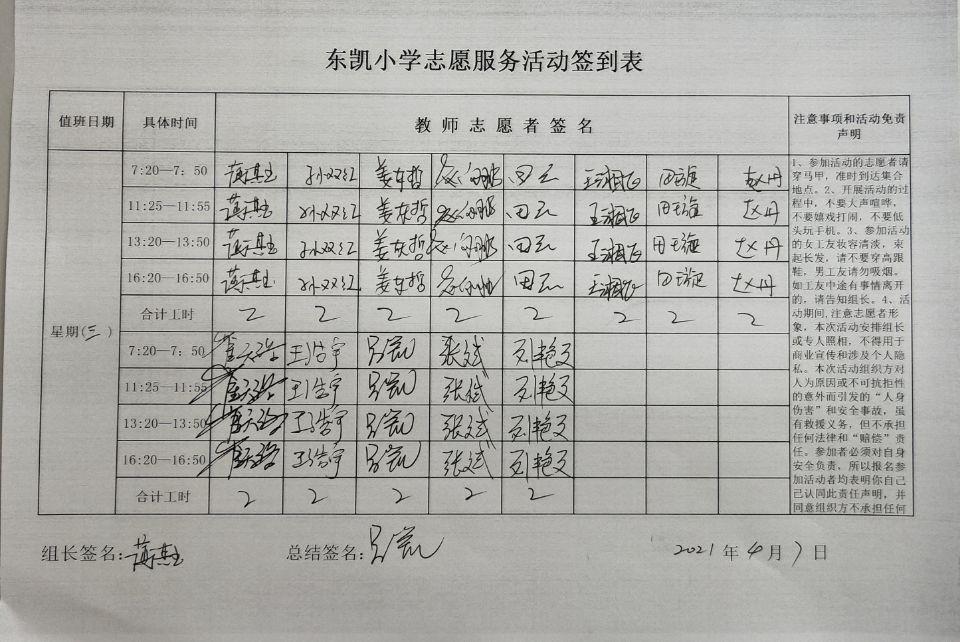 东凯小学志愿服务活动签到表
值班日期 具体时间 教师志愿者签名 注意事项和活动免责声明
星期(三)
7:20—7:50 孙双红 姜东哲 田云 王湘 田璇 赵丹
11:25—11:55 孙双红 姜东哲 田云 王湘 田璇 赵丹
13:20—13:50 孙双红 姜东哲 田云 王湘 田璇 赵丹
16:20—16:50 孙双红 姜东哲 田云 王湘 田璇 赵丹
合计工时 2 2 2 2 2 2 2 2
7:20—7:50 王浩宇 吴凯 张斌 刘艳文
11:25—11:55 王浩宇 吴凯 张斌 刘艳文
13:20—13:50 王浩宇 吴凯 张斌 刘艳文
16:20—16:50 王浩宇 吴凯 张斌 刘艳文
合计工时 2 2 2 2 2
1、参加活动的志愿者请
穿马甲，准时到达集合
地点。2、开展活动的过
程中，不要大声喧哗，
不要嬉戏打闹，不要低
头玩手机。3、参加活动
的女工友妆容清淡，束
起长发，请不要穿高跟
鞋，男工友请勿吸烟。
如工友中途有事情离开
的，请告知组长。4、活
动期间,注意志愿者形
象，本次活动安排组长
或专人照相，不得用于
商业宣传和涉及个人隐
私。本次活动组织方对
人为原因或不可抗拒性
的意外而引发的“人身
伤害”和安全事故，虽
有救援义务，但不承担
任何法律和“赔偿”责
任。参加者必须对自身
安全负责，所以报名参
加活动者均表明你自己
已认同此责任声明，并
同意组织方不承担任何
组长签名: 总结签名: 吴凯 2021年4月7日